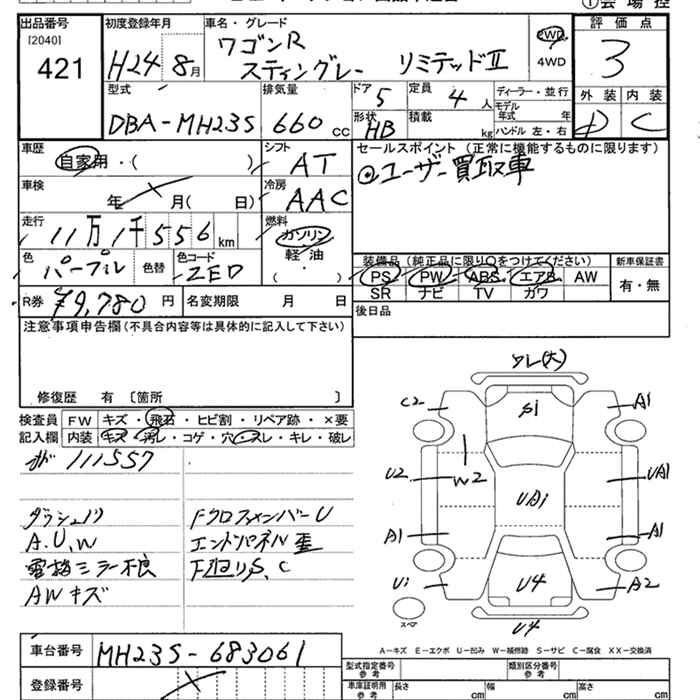 出品番号
[2040]
421
初度登録年月
H24 8月
車名・グレード
ワゴンR
スティングレー リミテッドⅡ
2WD
4WD
評価点
3
外装 内装
D C
型式
DBA-MH23S
排気量
660 cc
ドア 5
定員 4 人
形状 HB
積載 kg
ディーラー・並行
モデル年式 年
ハンドル 左・右
車歴
自家用・( )
シフト
AT
車検
年 月( 日)
冷房
AAC
走行
11万1千556km
燃料
ガソリン
軽油
( )
色
パープル
色替
色コード
ZED
R券 ¥9,780円
名変期限 月 日
セールスポイント (正常に機能するものに限ります)
◎ユーザー買取車
装備品 (純正品に限り○をつけてください)
PS PW ABS エアB AW
SR ナビ TV カワ
新車保証書
有・無
後日品
注意事項申告欄(不具合内容等は具体的に記入して下さい)
修復歴 有〔箇所 〕
検査員記入欄
FW キズ・飛石・ヒビ割・リペア跡・×要
内装 キズ・汚レ・コゲ・穴・スレ・キレ・破レ
111557
A.U,W
電格ミラー不良
AWキズ
FクロスメンバーU
エンドパネル歪
F廻りS、C
ワレ(大)
C2
S1
A1
U2
W2
UA1
UA1
A1
A1
U1
U4
A2
スペア
U4
A-キズ E-エクボ U-凹み W-補修跡 S-サビ C-腐食 XX-交換済
車台番号
MH23S-683061
登録番号
型式指定番号 参考
類別区分番号 参考
車庫証明用 参考
長さ cm
幅 cm
高さ cm